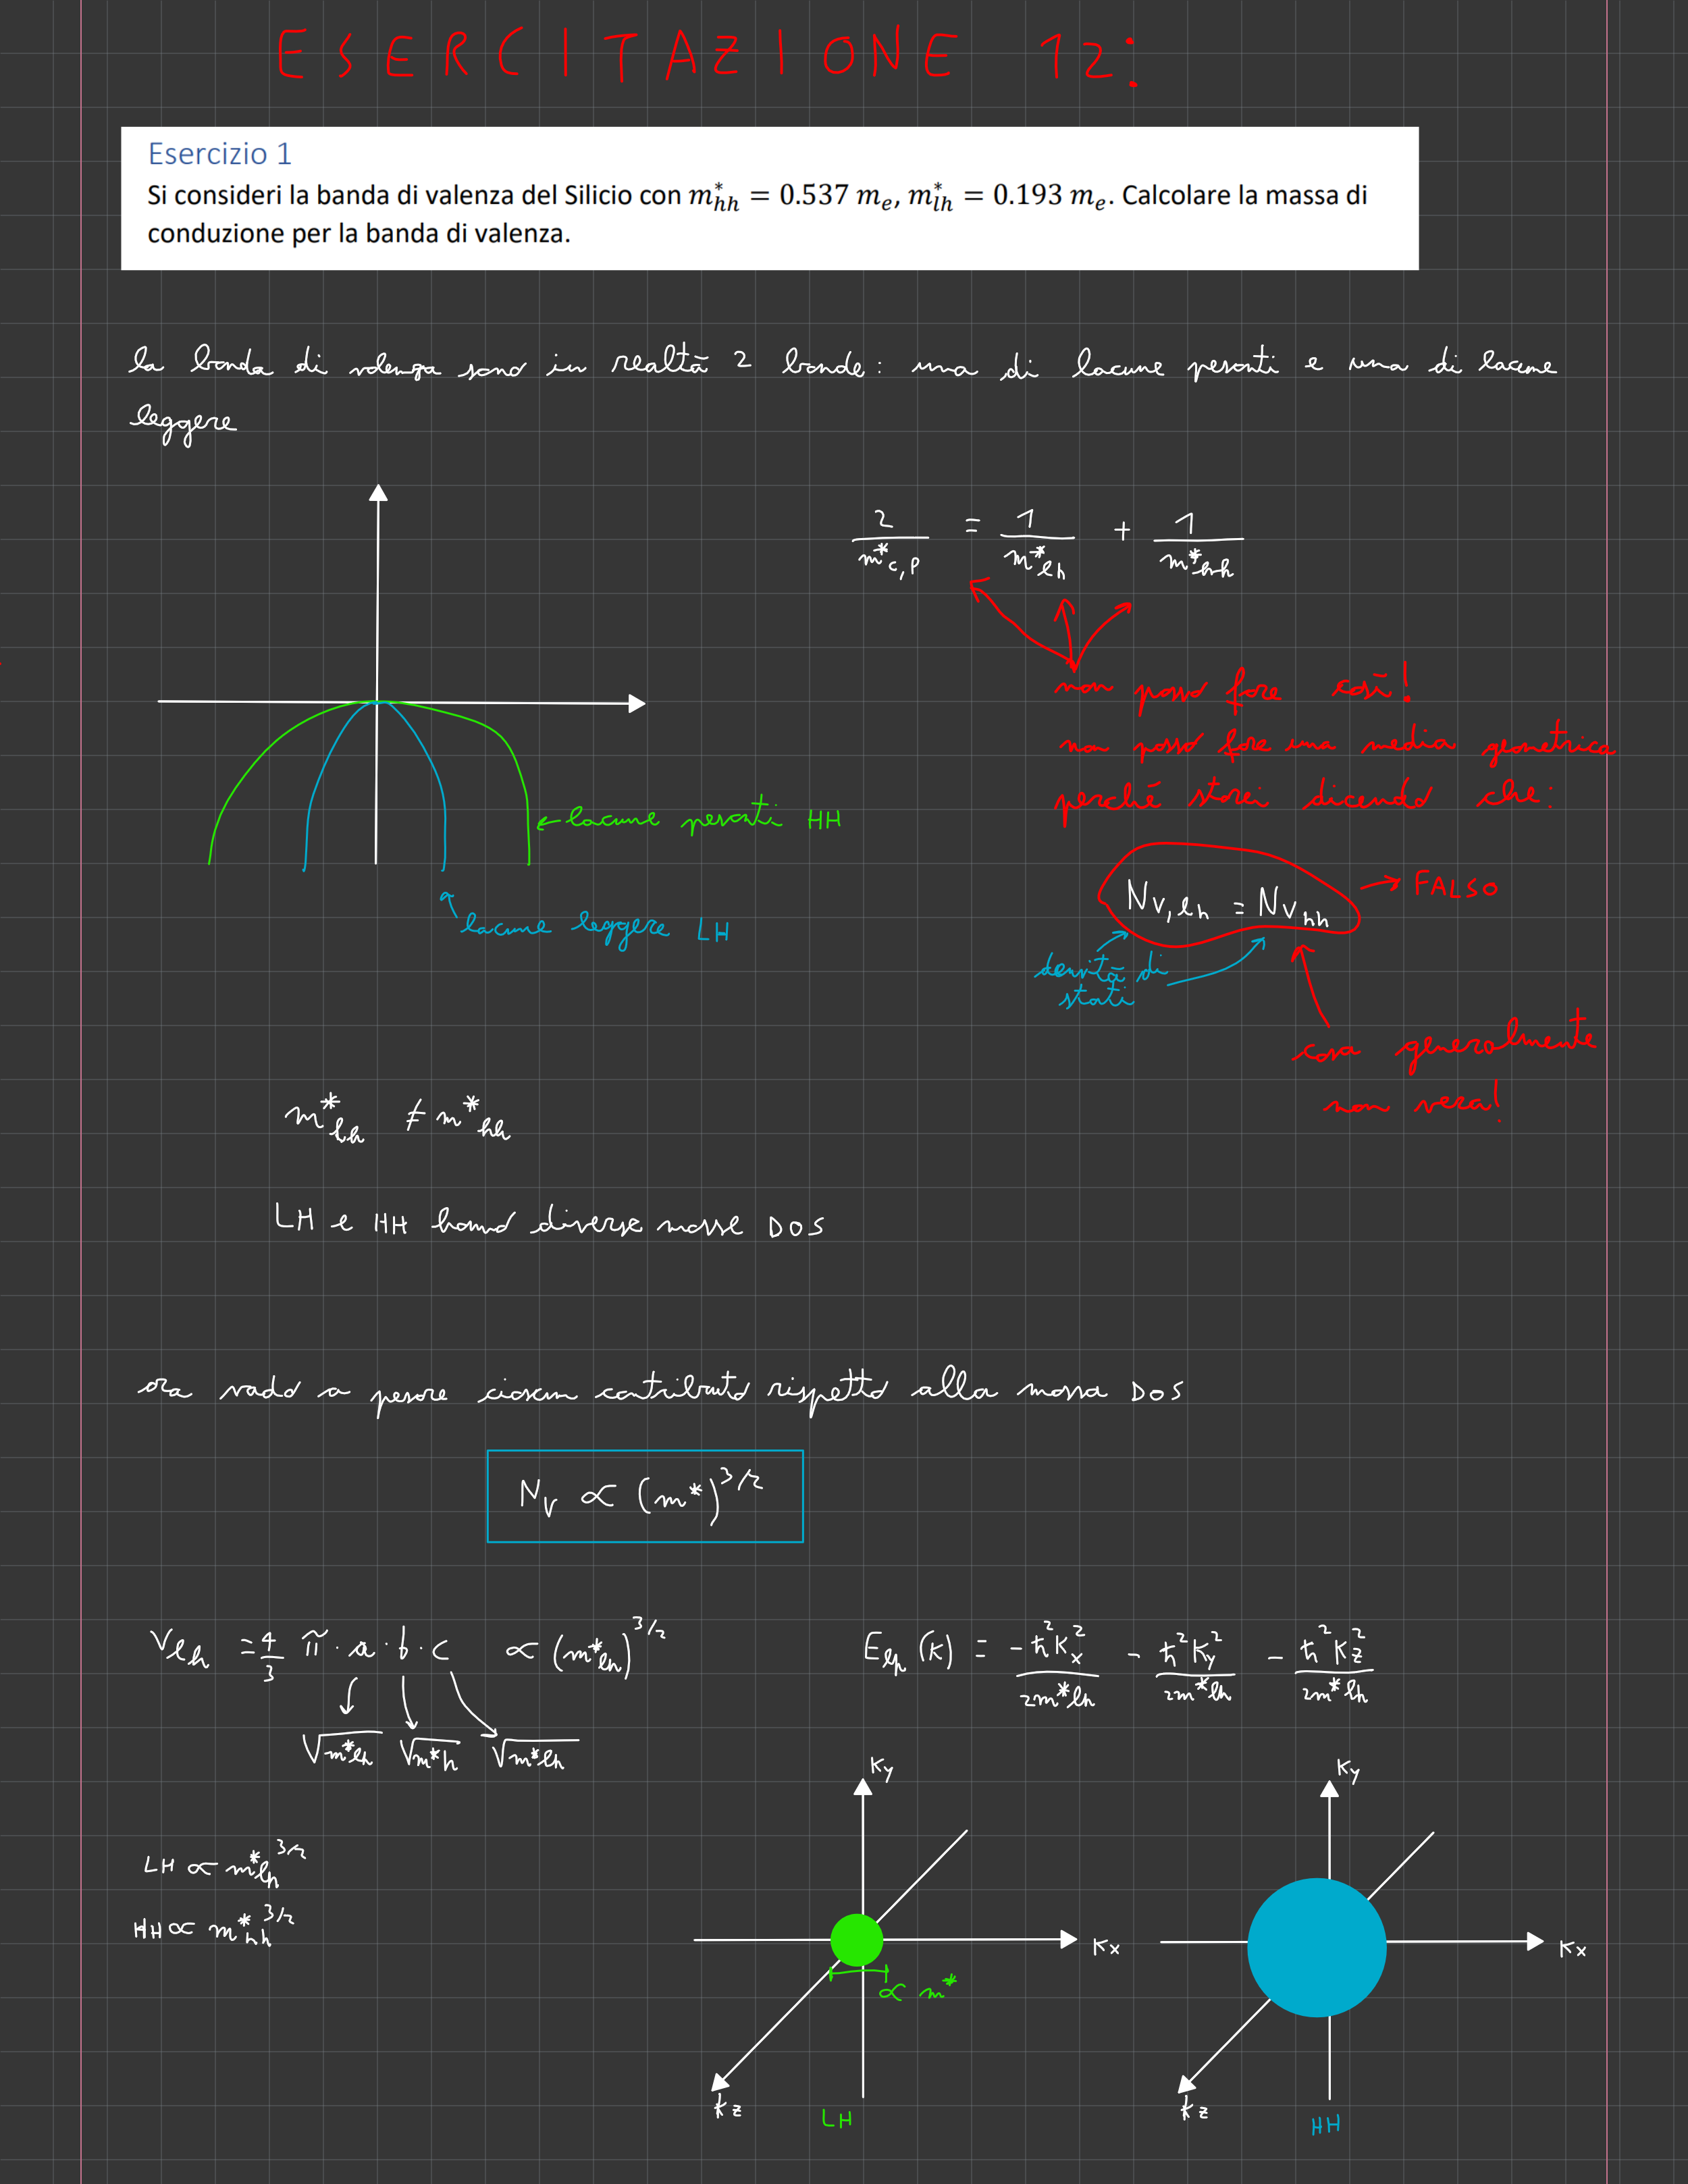 ESERCITAZIONE 12:
Esercizio 1
Si consideri la banda di valenza del Silicio con m*hh = 0.537 me, m*lh = 0.193 me. Calcolare la massa di
conduzione per la banda di valenza.
la banda di valenza sono in realtà 2 bande: una di lacune pesanti e una di lacune
leggere
2/m*c,p = 1/m*lh + 1/m*hh
non posso fare così!
non posso fare una media geometrica
perché starei dicendo che:
← lacune pesanti HH
lacune leggere LH
Nv,lh = Nvhh → FALSO
densità di
stati
cosa generalmente
non vera!
m*lh ≠ m*hh
LH e HH hanno diverse masse DOS
ora vado a pesare ciascun contributo rispetto alla massa DOS
Nv ∝ (m*)^3/2
Vlh = 4/3 π · a · b · c ∝ (m*lh)^3/2
√m*lh √m*h √m*lh
Elh (k) = -ħ²Kx²/2m*lh - ħ²Ky²/2m*lh - ħ²Kz²/2m*lh
LH ∝ m*lh^3/2
HH ∝ m*hh^3/2
Ky
Kx
∝ m*
Kz
LH
Ky
Kx
Kz
HH